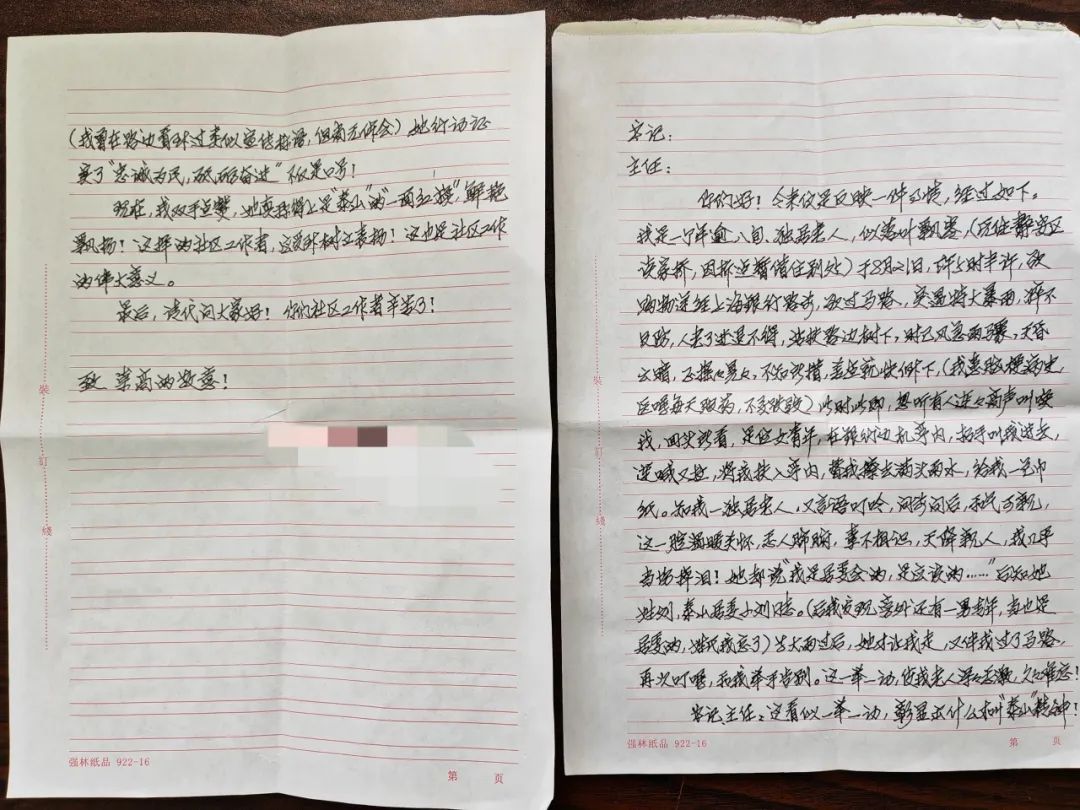 书记:
主任:
你们好！今来仅是反映一件事情,经过如下。
我是一个年逾八旬、独居老人,似落叶飘零(原住静安区
谈家桥,因拆迁暂借住别处)于8月21日,下午5时半许,欲
购物途经上海银行路旁,欲过马路,突遇特大暴雨,猝不
及防,人老了进退不得,紧挨路边树下,时已风急雨骤,天昏
云暗,正摇々晃々,不知所措,差点就此倒下,(我患脑梗病史,
医嘱每天服药,不受跌跤)此时此即,忽听有人连々高声叫唤
我,回头所看,是位女青年,在银行边机房内,招手叫我进去,
连喊又拉,将我扶入亭内,替我擦去满头雨水,给我一包巾
纸。知我一独居老人,又言语叮咛,问前问后,和气可亲,
这一腔温暖关怀,感人肺腑,素不相识,天降亲人,我几乎
当场掉泪！她却说"我是居委会的,是应该的……"后知她
姓刘,泰山居委小刘同志。(后我发现意外还有一男青年,当也是
居委的,姓氏我忘了)当大雨过后,她才让我走,又伴我过了马路,
再次叮嘱,和我举手告别。这一举一动,使我老人深々感激,久々难忘！
书记主任:这看似一举一动,彰显出什么叫"泰山"精神！
(我曾在路边看到过类似宣传标语,但尚无体会)她行动证
实了"忠诚为民,砥砺奋进"不仅是口号！
现在,我双手点赞,她真称得上是"泰山"的"一面红旗",鲜艳
飘扬！这样的社区工作者,这要外树立表扬！这也是社区工作
的伟大意义。
最后,请代问大家好！你们社区工作者辛苦了！
致 崇高的敬意！
强林纸品 922-16
第 页
强林纸品 922-16
第 页
装
订
线
装
订
线